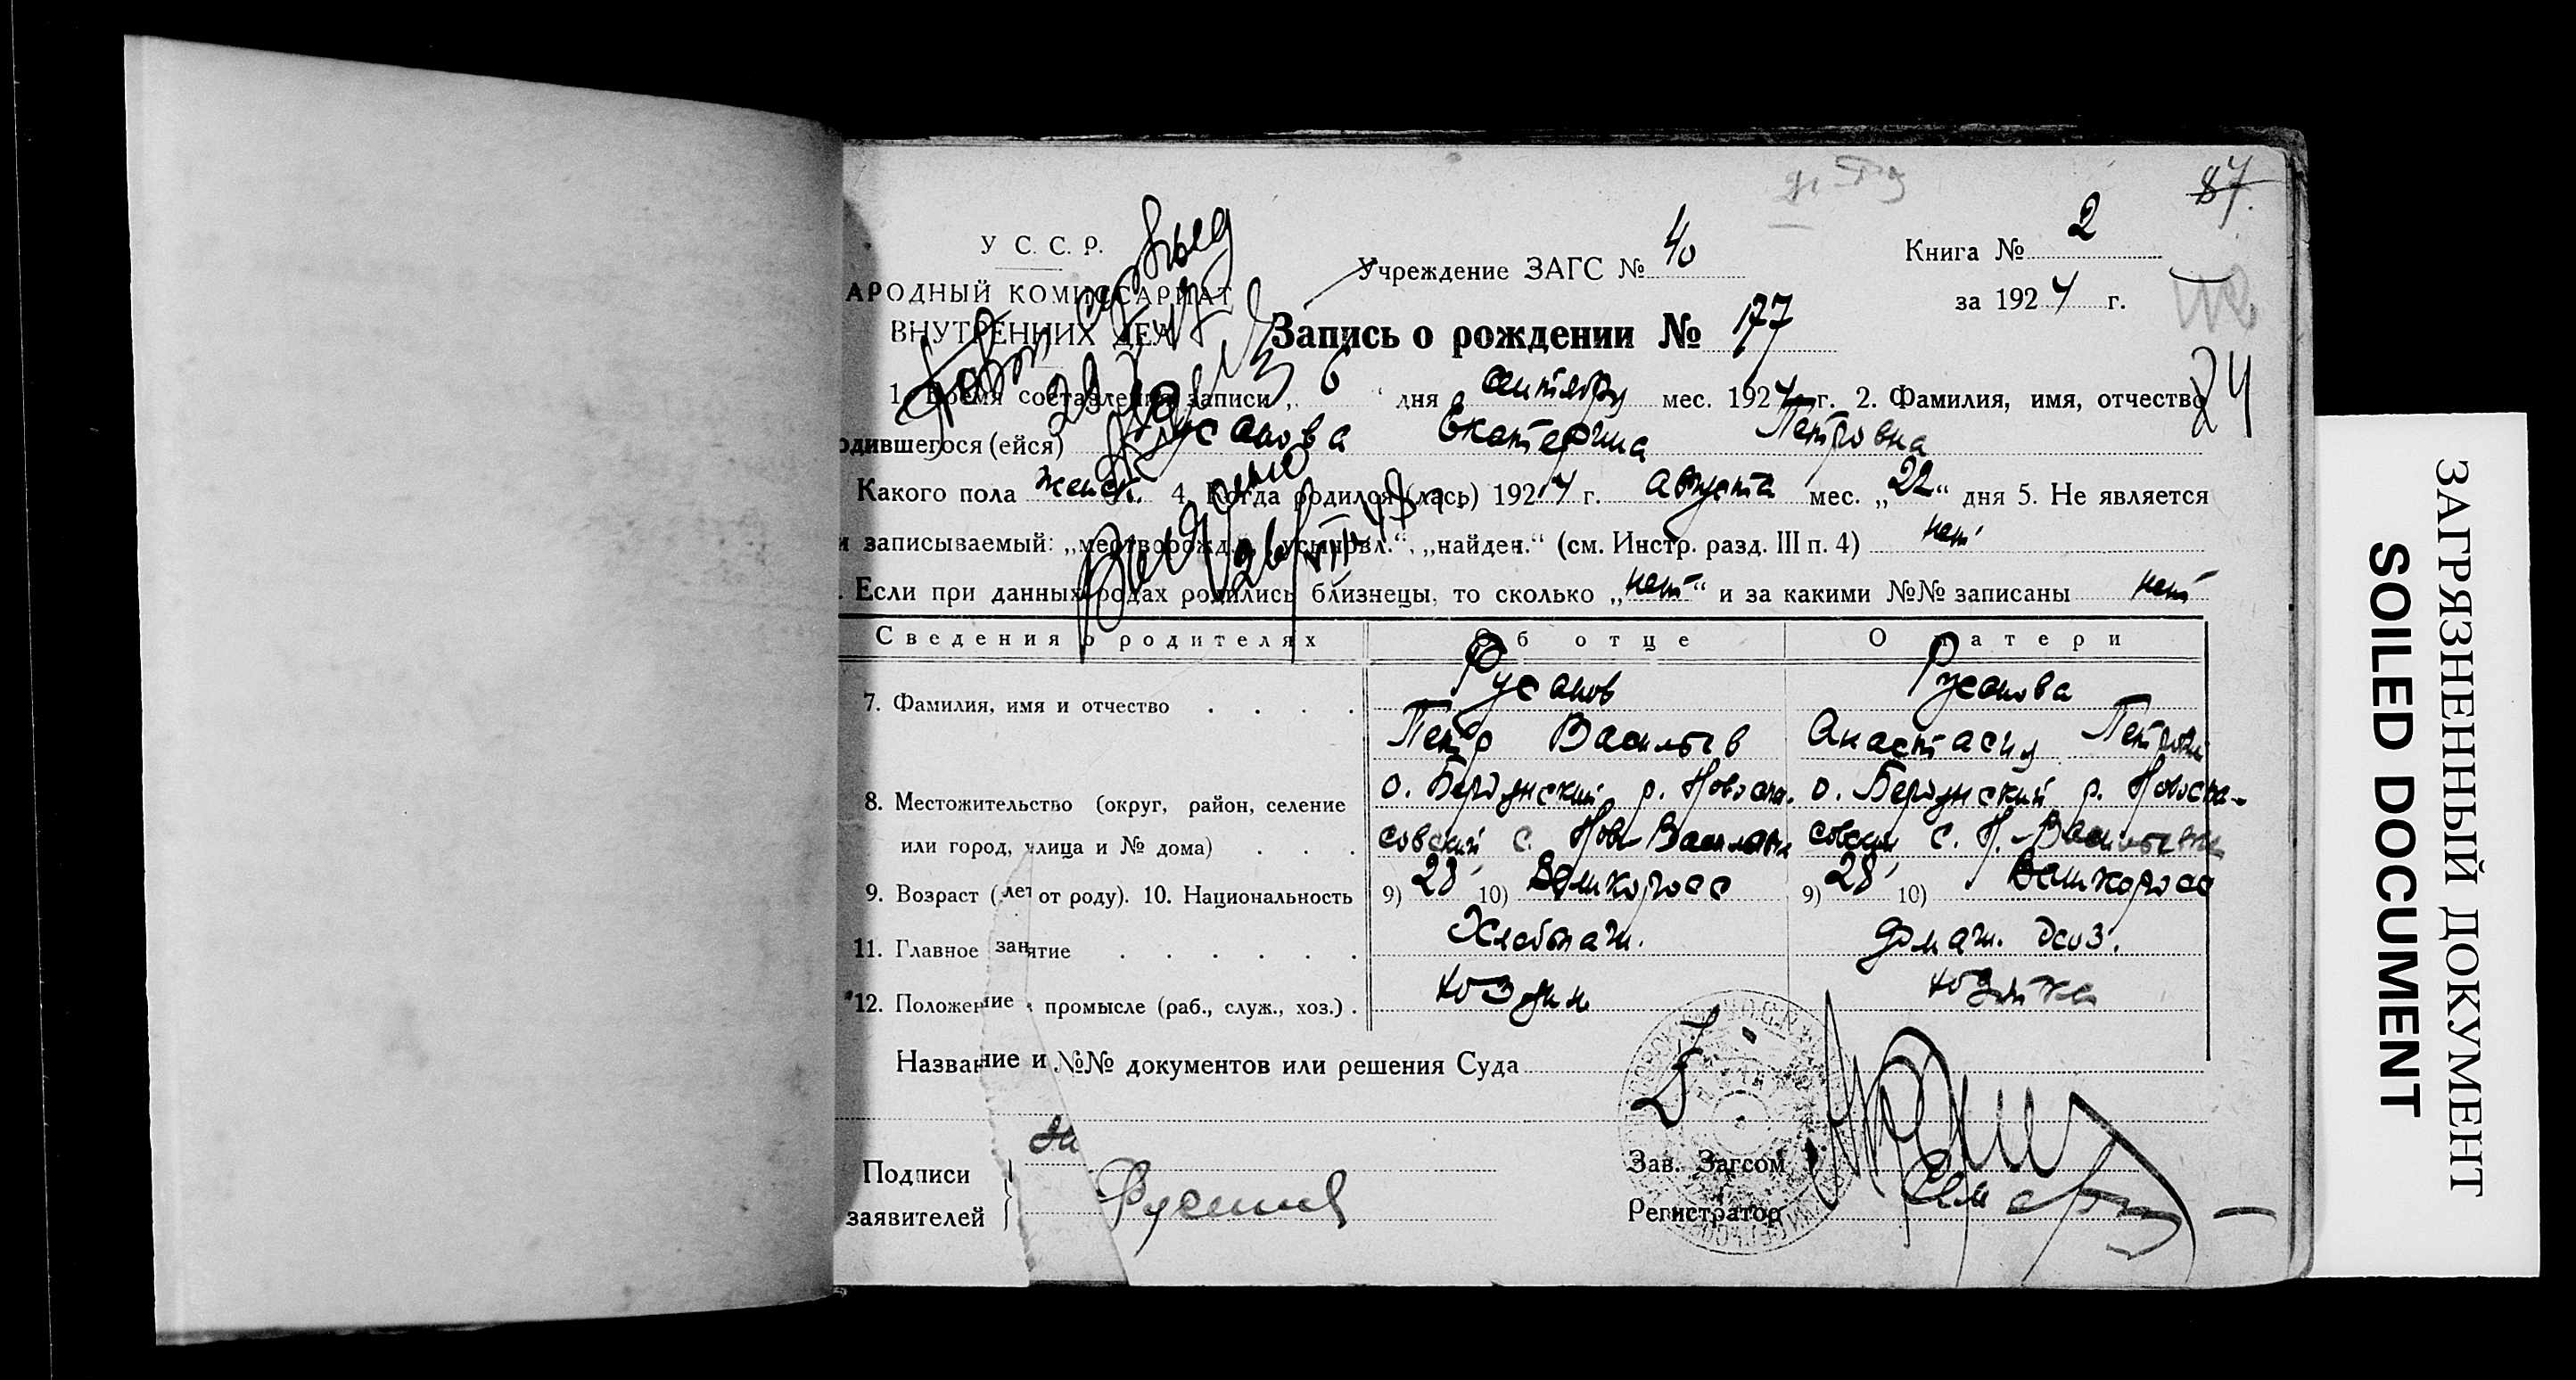 87.
У С. С. Р.
Учреждение ЗАГС № 40
Книга № 2
АРОДНЫЙ КОМИССАРИАТ
за 1924 г.
ВНУТРЕННИХ ДЕЛ
Запись о рождении № 177
24
1. Время составления записи „ 6 “ дня сентября мес. 1924 г. 2. Фамилия, имя, отчество
одившегося (ейся) Русанова Екатерина Петровна
Какого пола женск. 4. Когда родился (лась) 1924 г. августа мес. „22“ дня 5. Не является
и записываемый: „мертворожд.“, „усыновл.“, „найден.“ (см. Инстр. разд. III п. 4) нет
. Если при данных родах родились близнецы, то сколько „нет“ и за какими №№ записаны нет
Сведения о родителях Об отце О матери
7. Фамилия, имя и отчество . . . . Русанов Русанова
Петр Васильев Анастасия Петровн
8. Местожительство (округ, район, селение о. Бердянский р. Новоспа- о. Бердянский р. Новоспа-
или город, улица и № дома) . . . совский с. Ново Васильевк совский с. Н.-Васильевке
9. Возраст (лет от роду). 10. Национальность 9) 28 10) Великоросс 9) 28 10) Великоросс
11. Главное занятие . . . . . . Хлебопаш. домаш. хоз.
12. Положение в промысле (раб., служ., хоз.) . хозяин хозяйка
Название и №№ документов или решения Суда
Подписи
заявителей
Русанов
Зав. Загсом
Регистратор
ЗАГРЯЗНЕННЫЙ ДОКУМЕНТ
SOILED DOCUMENT